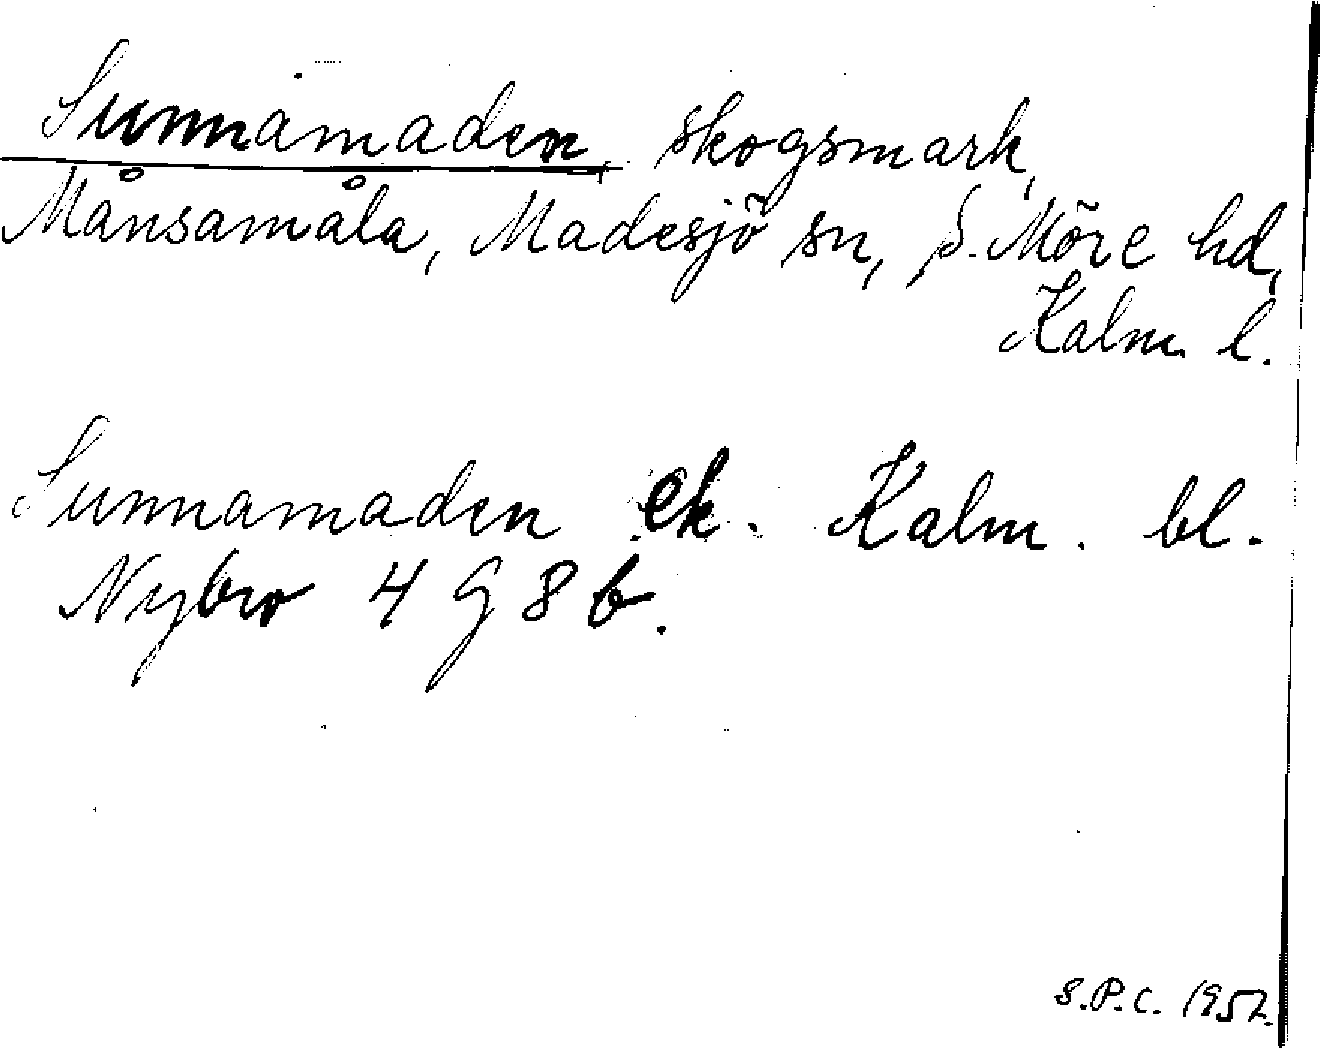 Sunnamaden, skogsmark,
Månsamåla, Madesjö sn, S. Möre hd,
Kalm. l.
Sunnamaden ek. Kalm. bl.
Nybro 4 G 8 b.
S.P.C. 1952.